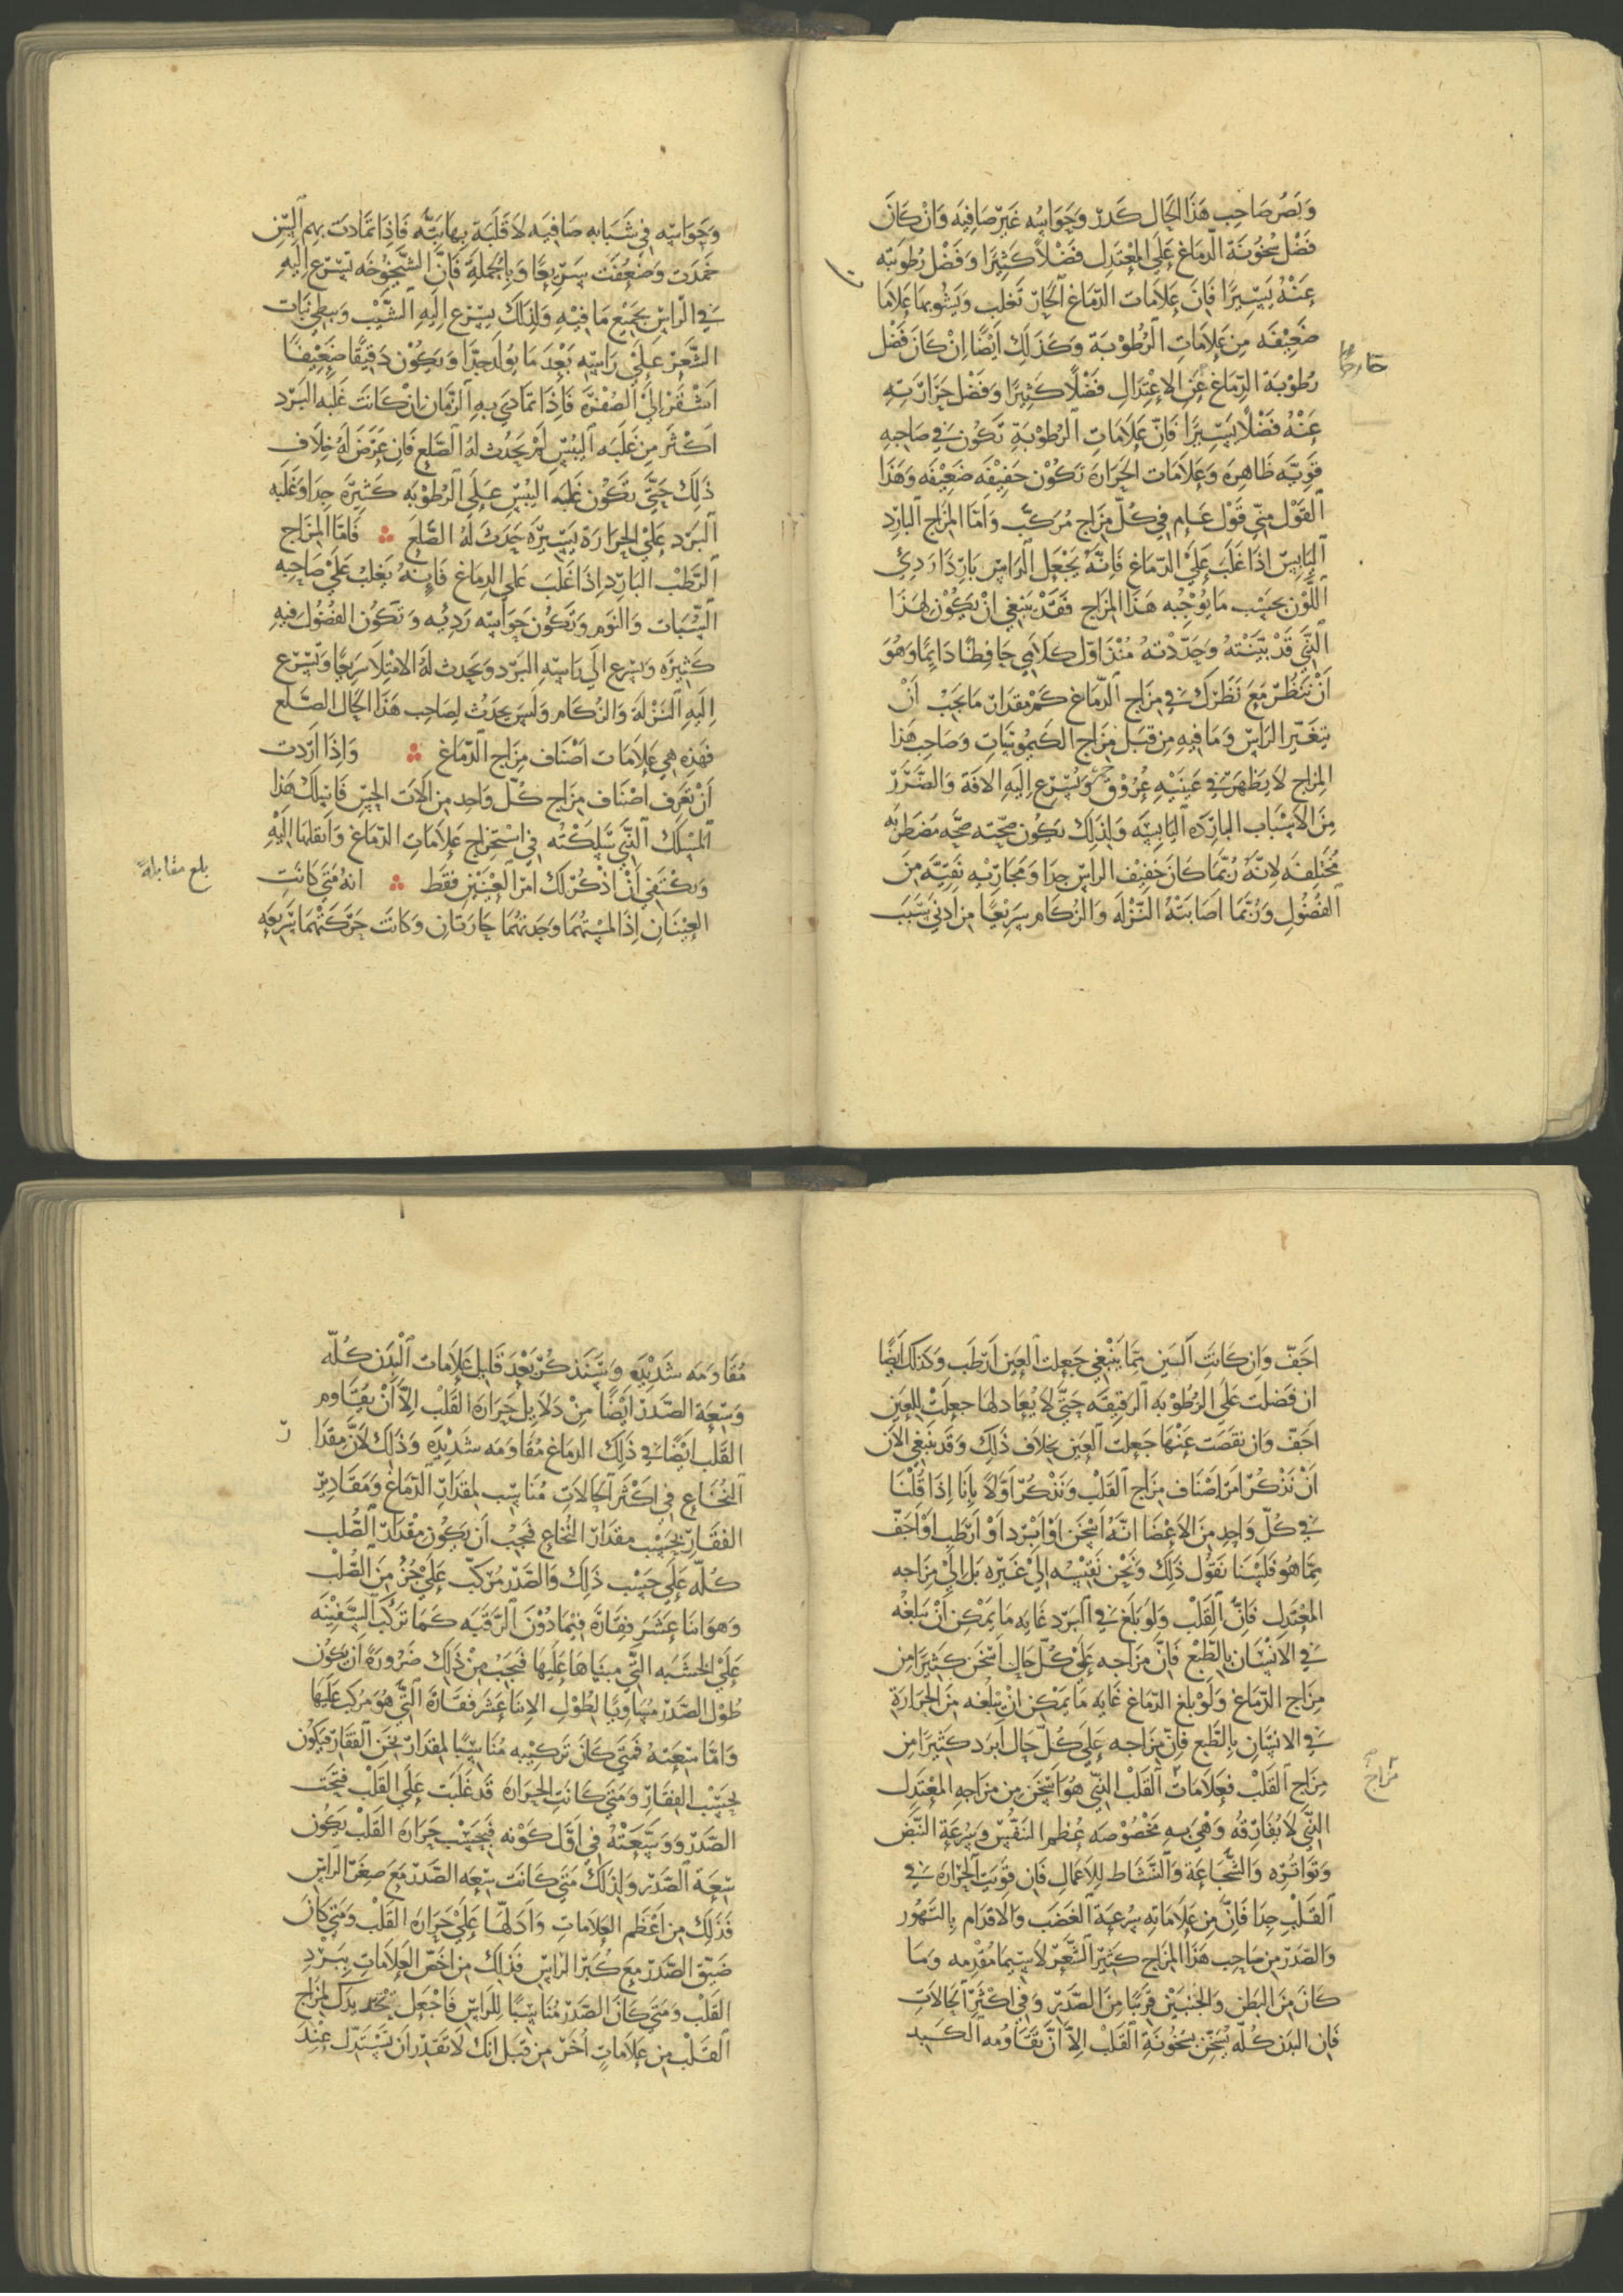 وَبَصَرُ صَاحِب هَذَا الحَال كَدِر وَحَوَاسُه غَيْر صَافِيَه وَانْ كَانَ
فَضْل سُخُونَة الدّمَاغ عَلَي المعْتَدِل فَضْلًا كَثِيرًا وَفَضْل رُطوبَته
عَنْهُ يَسِيرًا فَانَ عَلاَمَات الدّمَاغ الحَارّ تَغلب وَيَشُوبهَا عَلاَمَا
ضَعِيْفَه مِنْ عَلاَمَاتِ الرُطُوْبَة وَكَذَلِكَ اَيْضًا اِنْ كَانَ فَضْل
رُطُوْبَة الدِّمَاغ عَنِ الاِعْتِدَالِ فَضْلًا كَثِيرًا وَفَضْل حَرَارَتِهِ
عَنْهُ فَضْلًا يَسِيْرًا فَانّ عَلاَمَاتِ الرُطُوْبَةِ تَكُوْن فِي صَاحِبِهِ
قَوِيّه ظَاهِرَه وَعَلاَمَات الحَرَارَه تَكُوْن خَفِيْفَه ضَعِيْفَه وَهَذَا
القَوْل مِنِّي قَوْل عَام فِي كُلّ مِزَاج مُرَكَب وَامّا المِزَاج البَارِد
اليَابِس اذَا غَلَبَ عَلَي الدّمَاغ فَانَّهُ يَجْعَل الرَاسَ بَارِدًا رَدِئ
اللَّوْن بحَسَب مَا يُوْجِبُه هَذَا المزَاج فَقَدْ يَنبَغِي انْ يَكُوْن لِهَذَا
الَّذِي قَدْ بَيَّنْتُهُ وَحَدّدْتهُ مُنْذ اَوّل كَلاَمِي حَافِظًا دَايِمًا وَهُوَ
اَنْ تَنظُر مَعَ نَظَرِكَ فِي مِزَاج الدِّمَاغ كَمْ مِقدَار مَا يَجِبْ اَنْ
يَتغَيّر الرَاسُ وَمَا فِيهِ مِن قِبَل مِزَاج الكَيْمُوسَاتِ وَصَاحِب هَذا
المِزَاج لاَ يَظهَر فِي عَيْنَيْهِ عُرُوْق وَيُسْرِع اِليَهِ الافَة وَالضَّرَرْ
مِنَ الاَسْبَاب البَارِدَه اليَابِسَه وَلِذَلِك يَكُوْن صِحّته صِحّه مُضطَرِبَه
مُخْتلِفَه لاِنّهُ رُبّمَا كَانَ خَفِيْف الرَاسِ جِدا وَمَجَارِيْهِ نَقِيَّه مِنَ
الفضُوْلِ وَرُبَّمَا اصَابَتْهُ النَّزْلَه وَالزُكَام سَرِيْعًا مِن ادني سَبَب
حَارجًا
وَحَوَاسّه فِي شَبَابِهِ صَافِيَه لاَ قَلَبَة بِهَا بَتّه فَاذَا تمَادَت بِهِم السِّن
خَمَدَت وَضَعُفَت سَرِيْعًا وَبِالجُمْلَةِ فَانَّ الشَّيْخُوْخَه تُسْرِع اِليهِ
فِي الرَّاسِ بجَمِيْع مَا فِيْهِ وَلِذَلِكَ يسْرِع اِلَيهِ الشَّيْب وَيُبطِي نَبَات
الشَّعَر عَلَي رَاسِه بَعْدَ مَا يُوْلَد جِدّا وَيَكُوْن دَقيْقًا ضَعِيْفًا
اشْقَر اِلي الصُّفْرَة فَاِذَا تمَادَي بِهِ الزّمَان اِنْ كَانَتَ غَلَبه البَرْد
اَكْثَر مِن غَلَبَه اليُبْسِ لَمْ يَحْدُث لهُ الصَّلَع فَان عَرَضَ لَهُ خِلاَف
ذَلِكَ حَتَّي تَكُوْن غَلَبَه اليُبْسِ عَلَي الرُطوْبَه كَثِيْرَه جِدا وَغَلَبَه
البَرْد عَلَي الحرَارَة يَسِيْرَة حَدَثَ لَهُ الصَّلَعَ فَامّا المِزَاج
الرَّطْب البَارِد اِذا غَلَبَ عَلَي الدِمَاغ فَاِنهُ يَغلبْ عَلَي صَاحِبِه
السُّبَات وَالنَوْم وَتَكُوْن حَوَاسّه رَدِيْه وَتَكُون الفُضُول فيهِ
كَثِيْرَه وَيُسْرع الَي رَاسِهِ البَرْد وَيحدث لَهُ الاِمْتلاَ سَرِيْعًا وَتسْرِع
اِلَيهِ النَّزْلَة وَالزُكَام وَلَيسَ يَحدُثُ لِصَاحِب هَذَا الحَال الصَّلَع
فَهَذِه هِيَ عَلاَمَات اَصْنَاف مِزَاج الدّمَاغ وَاِذَا ارَدت
اَنْ تَعْرِف اصْنَاف مِزَاج كُلّ وَاحِد مِن الاَت الحِسّ فَاسْلُكْ هَذَا
المسْلَك الَّذِي سَلَكْتُه فِي اسْتِخرَاج عَلاَمَاتِ الدّمَاغ وَانقلهَا اِلَيْهِ
وَيكْتفِي اَنْ اذْكُر لَكَ امْر العَيْنَيْن فَقَط انهُ مَتَي كَانَتِ
العَيْنَان اِذَا لمسْتهُمَا وَجَدتهُمَا حَارتَان وَكَانَت حَرَكَتُهُمَا سَرِيعَه
بلغ مقابلةً
اجَفّ وَان كَانَت اليَن مِمّا يَنْبَغِي جَعِلت العَين اَرطَب وَكذَلِكَ ايضًا
ان فَضلت عَلَي الرُطُوْبَه الرَقِيْقَه حَتَّي لاَ يُعَادِلهَا جعِلَتْ للعَين
اجَفّ وَان نقصَت عَنْهَا جَعِلت العَين بخِلاَف ذَلِكَ وَقَد يَنْبَغِي الاَن
اَنْ نَذْكُر امْر اَصْنَاف مِزَاج القَلْب وَنَذْكُر اَوَّلاً بِانَا اِذَا قُلْنَا
فِي كُلّ وَاحِدٍ مِنَ الاَعْضَا انّهُ اسْخَن اَوْ ابْرَد اَوْ اَرْطَب اَوْ اجَفّ
مِمّا هُو فَلَيْسَنا نَقُوْل ذَلِكَ وَنَحْن نَقِيْسُه الي غَيْرِهِ بَل الِي مِزَاجه
المعْتدِل فَانَّ القَلْب وَلَو بَلَغَ فِي البَرْد غَايَه مَا يمْكِن انْ يَبْلغُه
فِي الاِنْسَان بالطَّبْع فَانَّ مِزَاجه عَلَي كُلّ حَال اسْخَن كَثِيْرًا مِن
مِزَاج الدّمَاغ وَلَو بَلَغ الدّمَاغ غَايَه مَا يمْكِن انْ يَبْلغُه مِنَ الحَرَارَة
فِي الاِنسَان بالطَّبع فَانّ مِزَاجه عَلَي كُلّ حَال ابْرَد كَثِيْرًا مِن
مِزَاج القَلْب فَعَلاَمَاتُ القَلْب الَّذِي هُوَ اسْخَن مِن مِزَاجه المعْتَدِل
الَّتِي لاَ تُفَارِقُه وَهْي بِهِ مَخْصُوْصَه عُظم النَفَس وَسُرْعَة النَّبْض
وَتَوَاتُرِه وَالشُّجَاعَة وَالنَّشَاط للاَعْمَال فَان قَوِيَت الحَرَارَه فِي
القَلْبِ جِدا فَاِنَّ مِن عَلاَمَاتِهِ سُرعَة الغَضَب وَالاقدَام بالتَّهوُّر
وَالصّدَر مِن صَاحِب هَذَا المزَاج كَثِيْر الشَّعْر لاَسِيّمَا مُقْدِمه وَمَا
كَانَ مِنَ البَطن وَالجنبَيْن قَرِيْبًا مِنَ الصَّدْر وَفِي اكْثَر الحَالاَتِ
فَان البَدَن كُلّه يُسْخَن بسُخُونَة القَلْب اِلاَّ اَنْ تَقَاوُمه الكَبِد
مزاج
مُقَاوَمَه شَدِيْدَه وَسَنَذكُر بَعْدَ قَلِيل عَلاَمَات البَدَن كُلّه
وَسِعَة الصّدَر ايْضًا مِنْ دَلاَيِل حَرَارَة القَلْب اِلاَّ اَنْ يُقَاوِم
القَلب ايْضًا فِي ذَلِكَ الدمَاغ مُقَاوَمَه شَدِيْدَه وَذَلِكَ لاَنَّ مِقدَا
ر
النُخَاع فِي اكْثَر الحَالاَت مُنَاسِب لمقدَار الدّمَاغ وَمَقَادِيْر
الفقَار بحَسَب مِقدَار النُخَاع فَيجِب اَن يَكُوْن مِقْدَار الصُّلب
كُلّه عَلَي حَسَب ذَلِكَ وَالصّدْر مُرَكّب عَلَي جُزْ مِنَ الصُّلْب
وَهوَ اثنَا عَشَر فقَارَة فِيْمَا دُوْنَ الرّقَبَه كَمَا تَرَكّب السَّفِيْنَه
عَلَي الخشَبَه الَّتِي مبنَاهَا عَلَيهَا فَيَجِبْ مِنْ ذَلِكَ ضَرُوْرَةً اَن يَكُوْن
طُوْل الصّدْر مُسَاوِيًا لِطُوْل الاثنَا عَشَر فقَارَة الَّتِي هُوَ مُرَكب عَلَيهَا
وَامَّا سعَتهُ فَمَتَي كَانَ تَركِيْبه مُنَاسِبًا لمقدَار ثخَن الفَقَار فيَكُوْن
بحَسَب الفِقَار وَمَتَي كَانَت الحَرَارَه قَد غَلَبَت عَلَي القَلْب فتحَت
الصّدْر وَوَسّعَتْهُ فِي اَوَّل كَوْنه فَبحَسَب حَرَارَة القَلْب يَكُوْن
سِعَة الصّدَر وَلِذلِكَ مَتَي كَانَت سِعَه الصّدْر مَعَ صِغَر الرَاس
فَذَلِكَ مِن اَعْظَم العَلاَمَاتِ وَادَلّهَا عَلَي حَرَارَة القَلْب وَمَتَي كَانَ
ضَيّق الصّدْر مَعَ كُبر الرَاس فَذلِكَ مِن اخَصّ العَلاَمَاتِ بِبَرْدِ
القَلْب وَمَتَي كَانَ الصّدْر مُنَاسِبًا للرَاس فَاجْعَل تحْدِيدَكَ لمزَاج
القَلْب مِن عَلاَمَاتٍ اُخَر مِن قبَل انَكَ لاَ تَقْدِر اَن تَسْتَدِل عِنْدَ